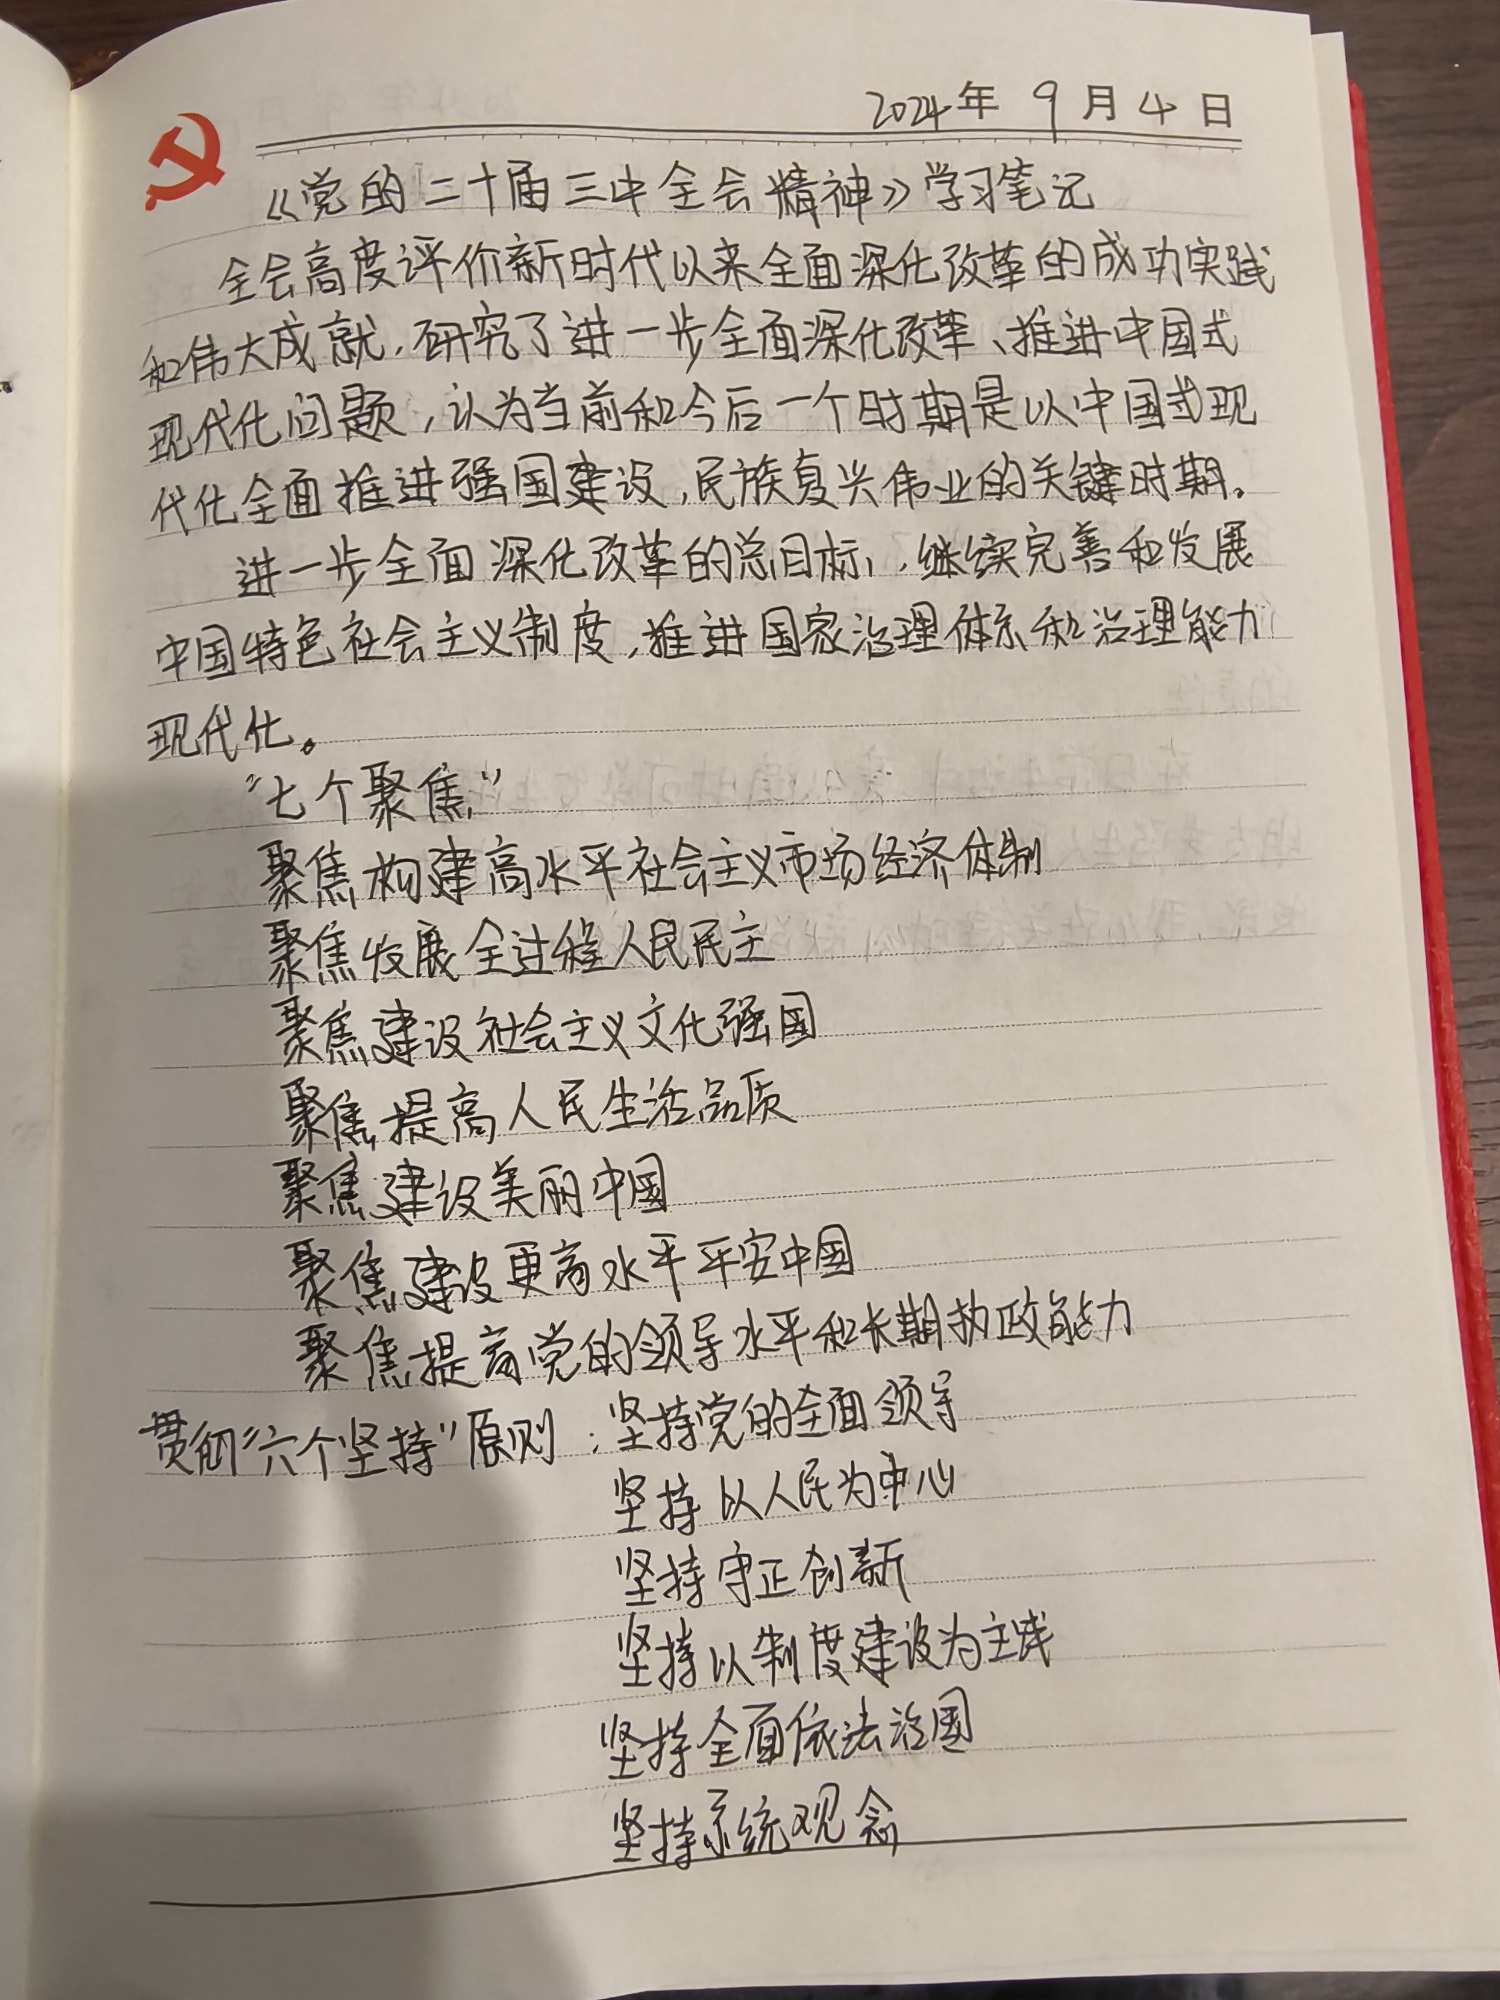 2024年 9月4日
《党的二十届三中全会精神》学习笔记
全会高度评价新时代以来全面深化改革的成功实践
和伟大成就,研究了进一步全面深化改革、推进中国式
现代化问题,认为当前和今后一个时期是以中国式现
代化全面推进强国建设,民族复兴伟业的关键时期。
进一步全面深化改革的总目标,继续完善和发展
中国特色社会主义制度,推进国家治理体系和治理能力
现代化。
“七个聚焦”
聚焦构建高水平社会主义市场经济体制
聚焦发展全过程人民民主
聚焦建设社会主义文化强国
聚焦提高人民生活品质
聚焦建设美丽中国
聚焦建设更高水平平安中国
聚焦提高党的领导水平和长期执政能力
贯彻“六个坚持”原则:坚持党的全面领导
坚持以人民为中心
坚持守正创新
坚持以制度建设为主线
坚持全面依法治国
坚持系统观念